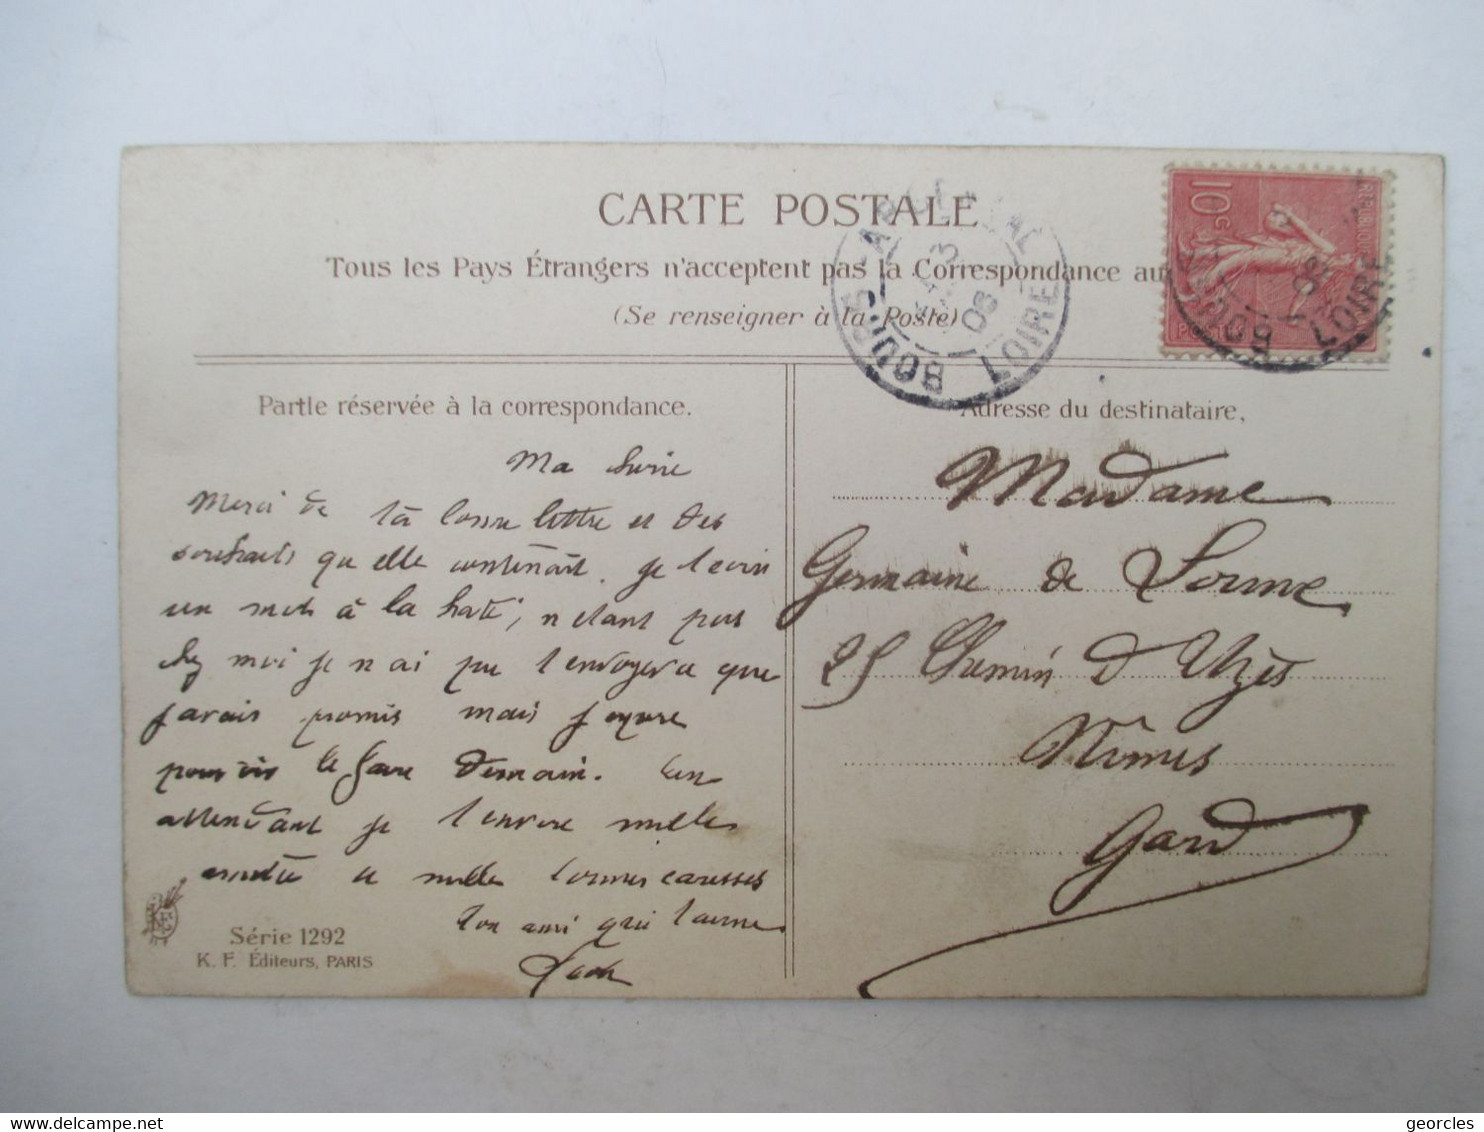 CARTE POSTALE
Tous les Pays Étrangers n'acceptent pas la Correspondance au
(Se renseigner à la Poste)
10c
POSTES
BOURG
LOIRE
08
LOIRE
08
Partie réservée à la correspondance.
Adresse du destinataire,
Ma
Merci de ta lettre et des
souhaits qu elle contenait. Je t ecris
un mot à la hate, n etant pas
chez moi je n ai pu t envoyer ce que
j avais promis mais j espere
pouvoir le faire demain. En
attendant je t envoie mille
amitié et mille bonnes caresses
ton ami qui t aime
Madame
Germaine de
25 Chemin d Uzès
Nîmes
Gard
Série 1292
K. F. Éditeurs, PARIS
georcles